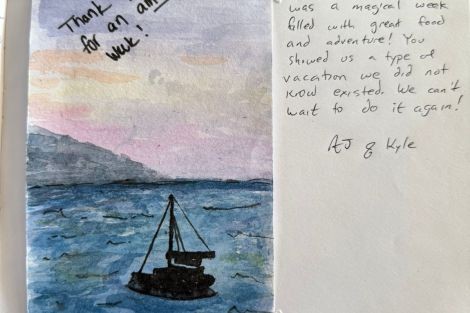 Thank
for an am
week!
was a magical week
filled with great food
and adventure! You
showed us a type of
vacation we did not
know existed. We can't
wait to do it again!
AJ & Kyle